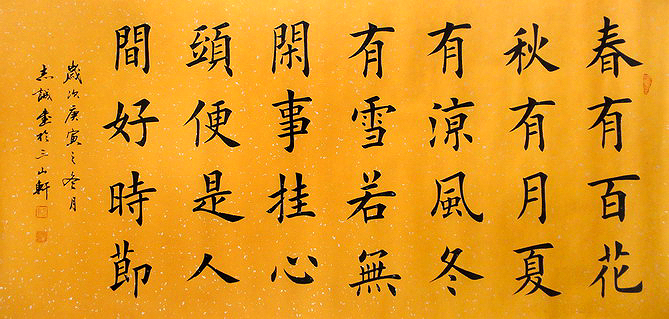 春有百花
秋有月夏
有涼風冬
有雪若無
閑事挂心
頭便是人
間好時節
歲次庚寅之冬月
志誠書於三山軒